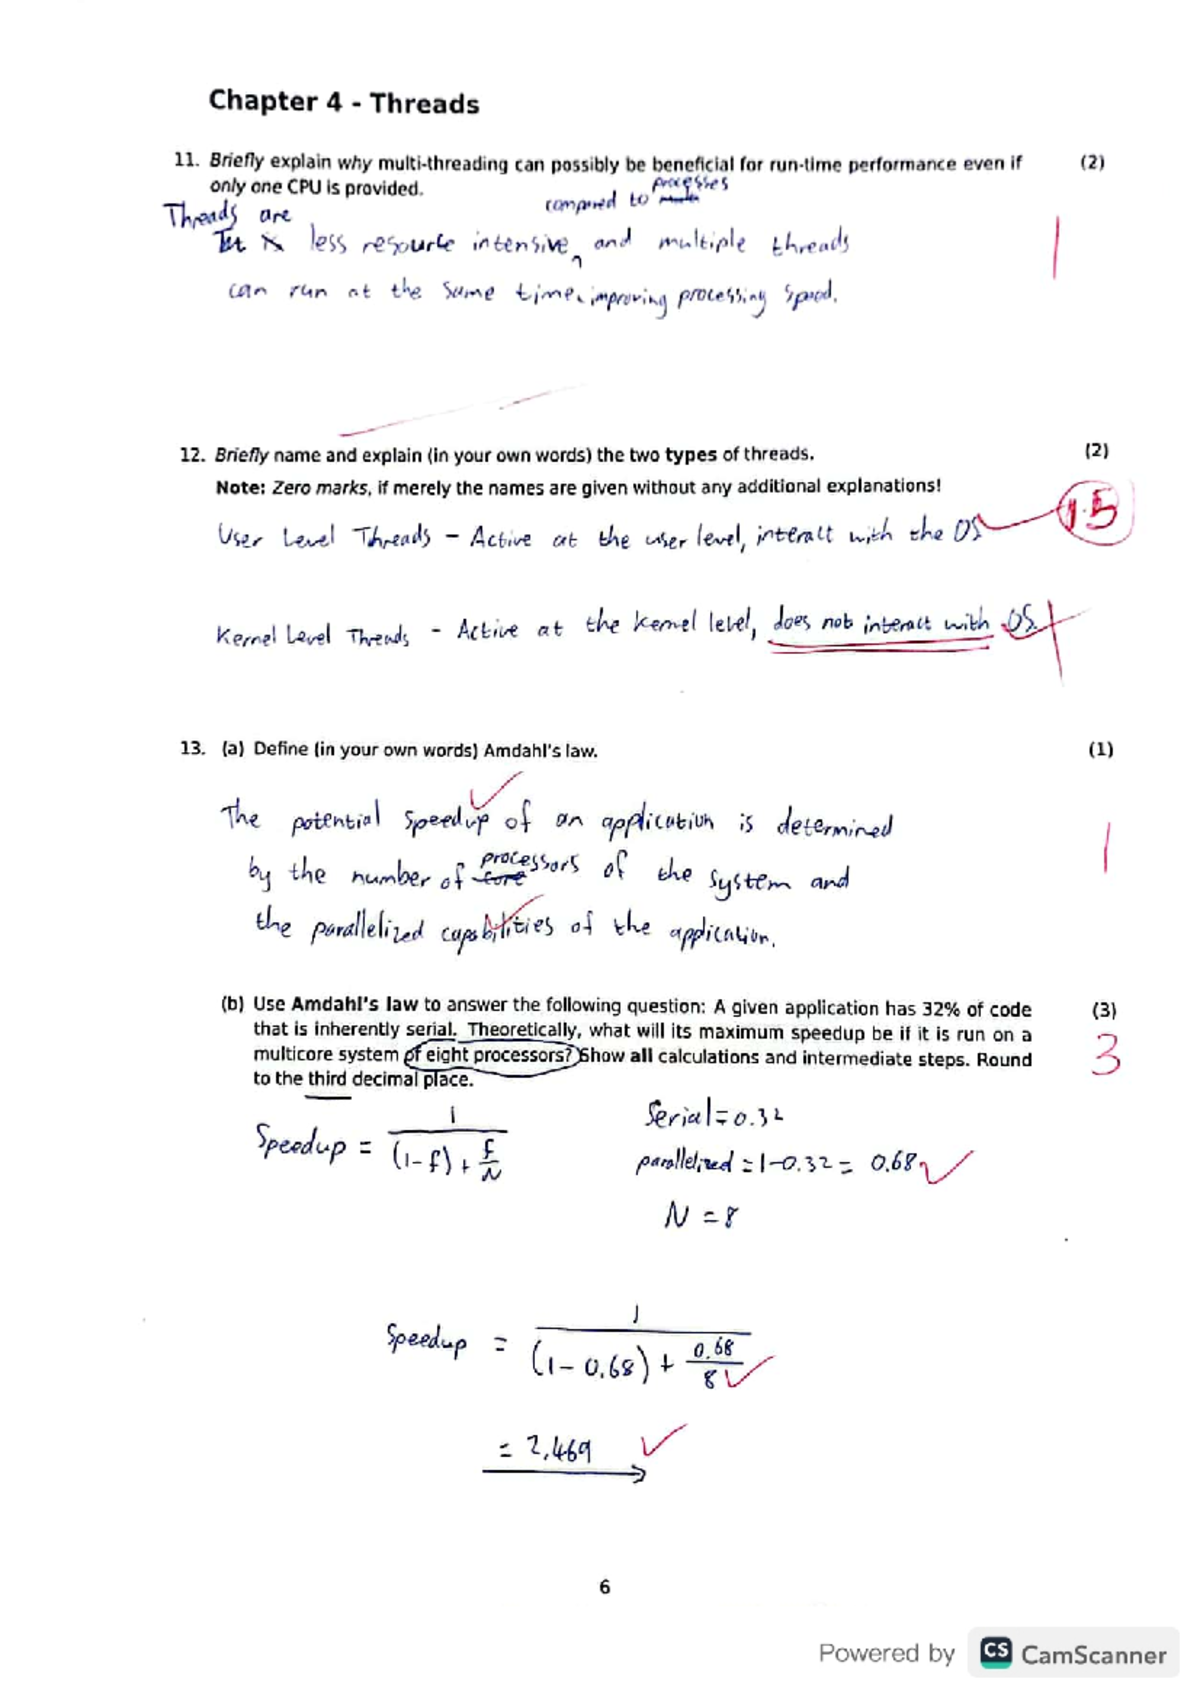 Chapter 4 - Threads
11. Briefly explain why multi-threading can possibly be beneficial for run-time performance even if (2)
only one CPU is provided.
processes
compared to
Threads are
less resource intensive, and multiple threads
1
can run at the same time, improving processing speed.
12. Briefly name and explain (in your own words) the two types of threads. (2)
Note: Zero marks, if merely the names are given without any additional explanations!
1.5
User Level Threads - Active at the user level, interact with the OS
Kernel Level Threads - Active at the kernel level, does not interact with OS.
13. (a) Define (in your own words) Amdahl's law. (1)
The potential speedup of an application is determined
1
by the number of processors of the system and
the parallelized capabilities of the application.
(b) Use Amdahl's law to answer the following question: A given application has 32% of code (3)
that is inherently serial. Theoretically, what will its maximum speedup be if it is run on a
multicore system of eight processors? Show all calculations and intermediate steps. Round
3
to the third decimal place.
Speedup = 1 / (1-f) + f/N
Serial = 0.32
parallelized = 1-0.32 = 0.68
N = 8
Speedup = 1 / (1-0.68) + 0.68/8
= 2.469
6
Powered by CS CamScanner